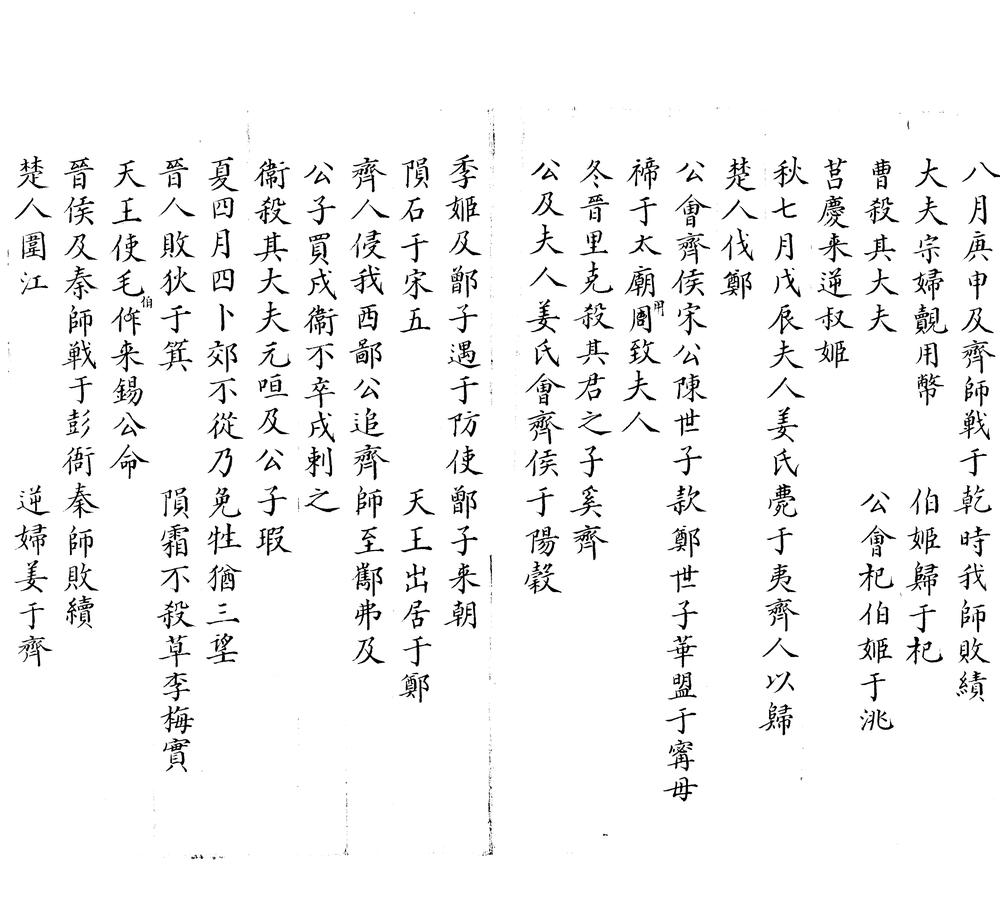 八月庚申及齊師戦于乾時我師敗績
大夫宗婦覿用幣 伯姬歸于杞
曹殺其大夫 公會杞伯姬于洮
莒慶来逆叔姬
秋七月戊辰夫人姜氏薨于夷齊人以歸
楚人伐鄭
公會齊侯宋公陳世子款鄭世子華盟于甯毋
禘于太廟周用致夫人
冬晉里克殺其君之子奚齊
公及夫人姜氏會齊侯于陽穀
季姬及鄫子遇于防使鄫子来朝
隕石于宋五 天王出居于鄭
齊人侵我西鄙公追齊師至酅弗及
公子買戍衞不卒戍刺之
衞殺其大夫元咺及公子瑕
夏四月四卜郊不從乃免牲猶三望
晉人敗狄于箕 隕霜不殺草李梅實
天王使毛伯俾来錫公命
晉侯及秦師戦于彭衙秦師敗績
楚人圍江 逆婦姜于齊